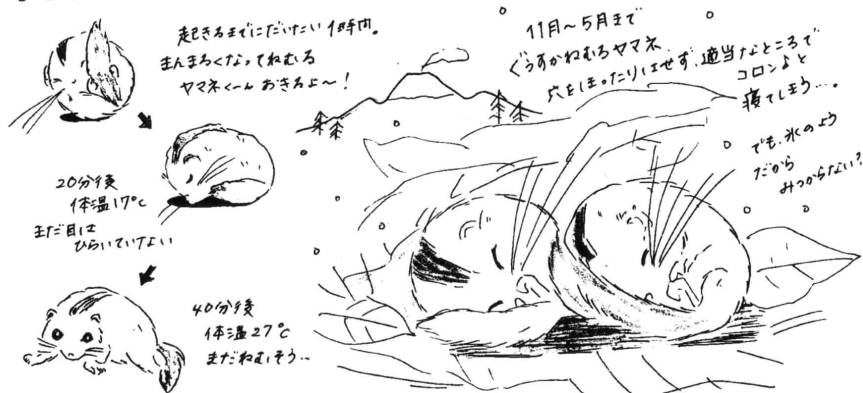 起きるまでにだいたい1時間。
まんまるくなってねむる
ヤマネくーん おきろよ〜！
20分後
体温17℃
まだ目は
ひらいていない
40分後
体温27℃
まだねむそう…
11月〜5月まで
ぐうすかねむるヤマネ
穴をほったりはせず、適当なところで
コロンと
寝てしまう…。
でも、氷のよう
だから
みつからない？